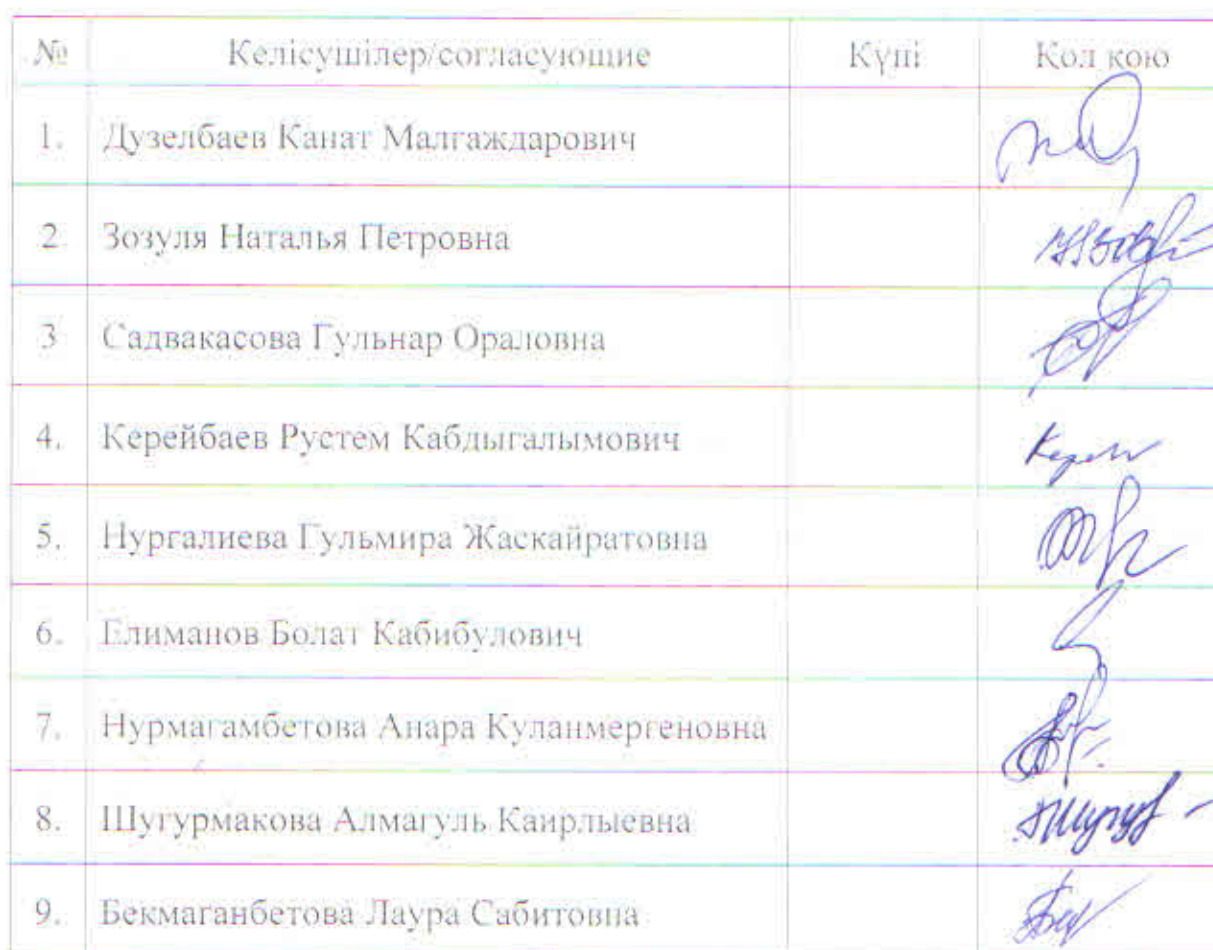 № Келісушілер/согласующие Күні Қол қою
1. Дузелбаев Канат Малгаждарович
2 Зозуля Наталья Петровна
3 Садвакасова Гульнар Ораловна
4. Керейбаев Рустем Кабдыгалымович
5. Нургалиева Гульмира Жаскайратовна
6. Елиманов Болат Кабибулович
7. Нурмагамбетова Анара Куланмергеновна
8. Шугурмакова Алмагуль Каирлыевна
9. Бекмаганбетова Лаура Сабитовна